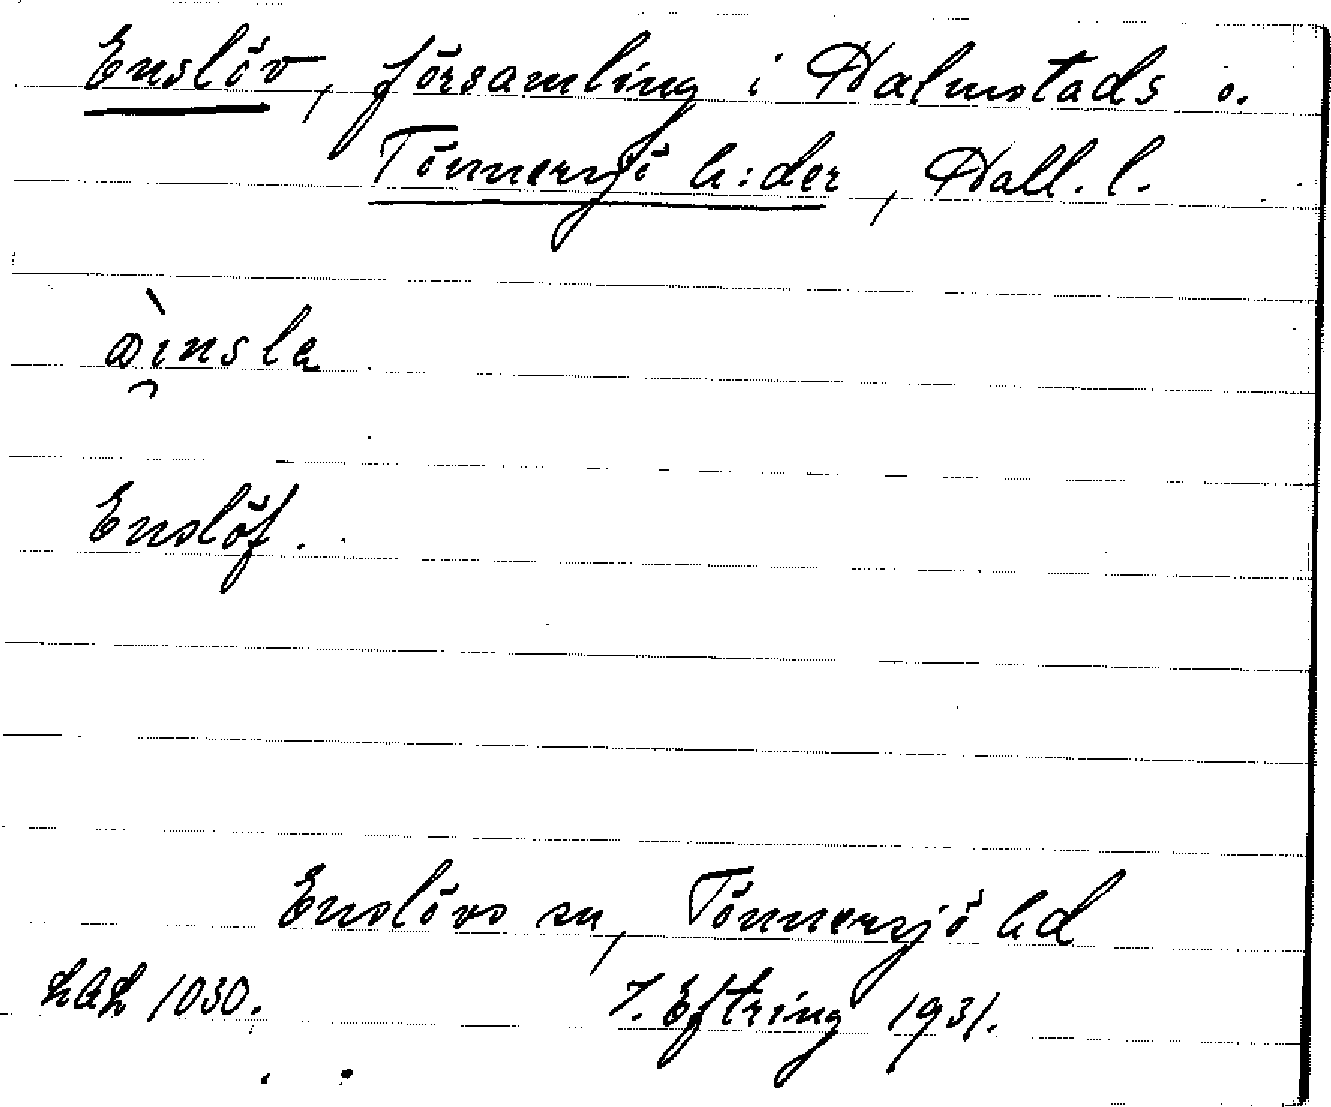 Enslöv, församling i Halmstads o.
Tönnersjö h:der, Hall. l.
æ̀i̯nsla
Enslöf.
Enslövs sn, Tönnersjö hd
LAL 1030. J. Eftring 1931.